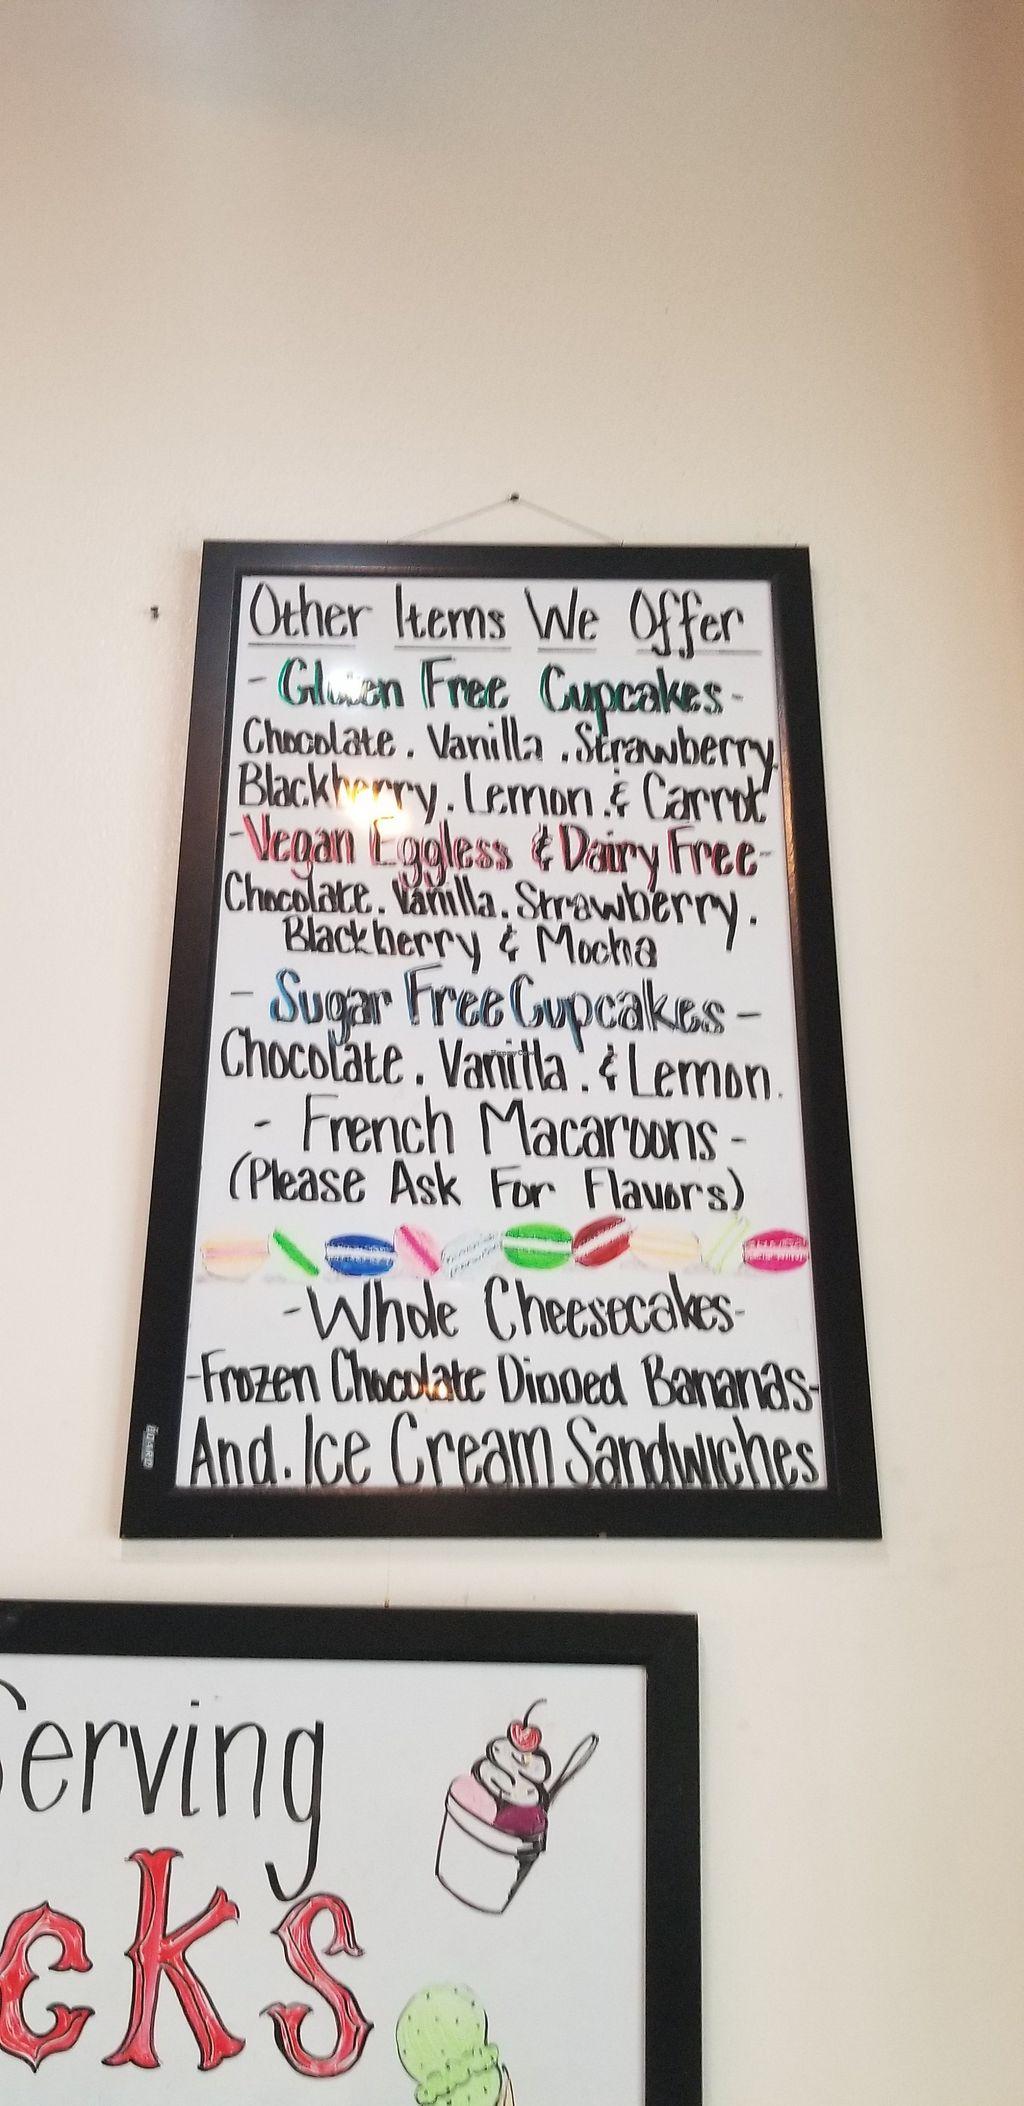 Other Items We Offer
- Gluten Free Cupcakes -
Chocolate. Vanilla. Strawberry.
Blackberry. Lemon. & Carrot
- Vegan Eggless & Dairy Free -
Chocolate. Vanilla. Strawberry.
Blackberry & Mocha
- Sugar Free Cupcakes -
Chocolate. Vanilla. & Lemon.
- French Macaroons -
(Please Ask For Flavors)
- Whole Cheesecakes -
- Frozen Chocolate Dipped Bananas -
And. Ice Cream Sandwiches
Serving
cks